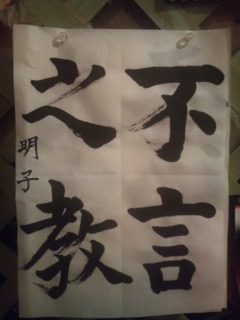 不言
之教
明子